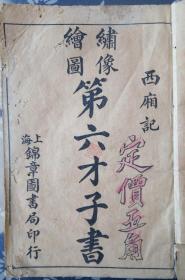 西廂記
繡像
繪圖
第六才子書
上海
錦章圖書局印行
定價五角